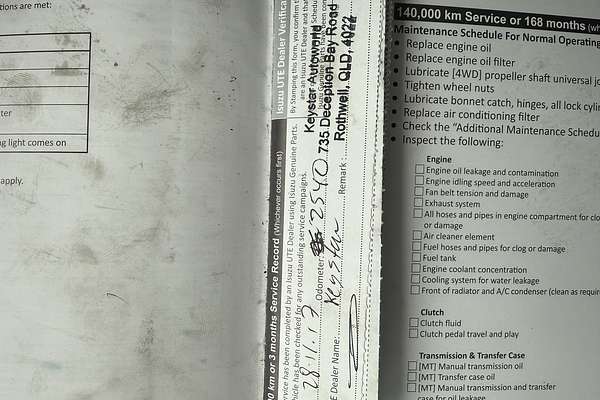 ons are met:
ter
g light comes on
apply.
0 km or 3 months Service Record (Whichever occurs first)
Isuzu UTE Dealer Verifica
ervice has been completed by an Isuzu UTE Dealer using Isuzu Genuine Parts.
hicle has been checked for any outstanding service campaigns.
By Stamping this form, you confirm t
are an Isuzu UTE Dealer and that
28.11.17
Odometer: 2540
Keystar Autoworld
735 Deception Bay Road
Rothwell, QLD, 4022
E Dealer Name: Keystar
Remark :
140,000 km Service or 168 months (wh
Maintenance Schedule For Normal Operating
• Replace engine oil
• Replace engine oil filter
• Lubricate [4WD] propeller shaft universal jo
• Tighten wheel nuts
• Lubricate bonnet catch, hinges, all lock cylin
• Replace air conditioning filter
• Check the "Additional Maintenance Schedu
• Inspect the following:
Engine
Engine oil leakage and contamination
Engine idling speed and acceleration
Fan belt tension and damage
Exhaust system
All hoses and pipes in engine compartment for clo
or damage
Air cleaner element
Fuel hoses and pipes for clog or damage
Fuel tank
Engine coolant concentration
Cooling system for water leakage
Front of radiator and A/C condenser (clean as require
Clutch
Clutch fluid
Clutch pedal travel and play
Transmission & Transfer Case
[MT] Manual transmission oil
[MT] Transfer case oil
[MT] Manual transmission and transfer
case for oil leakage